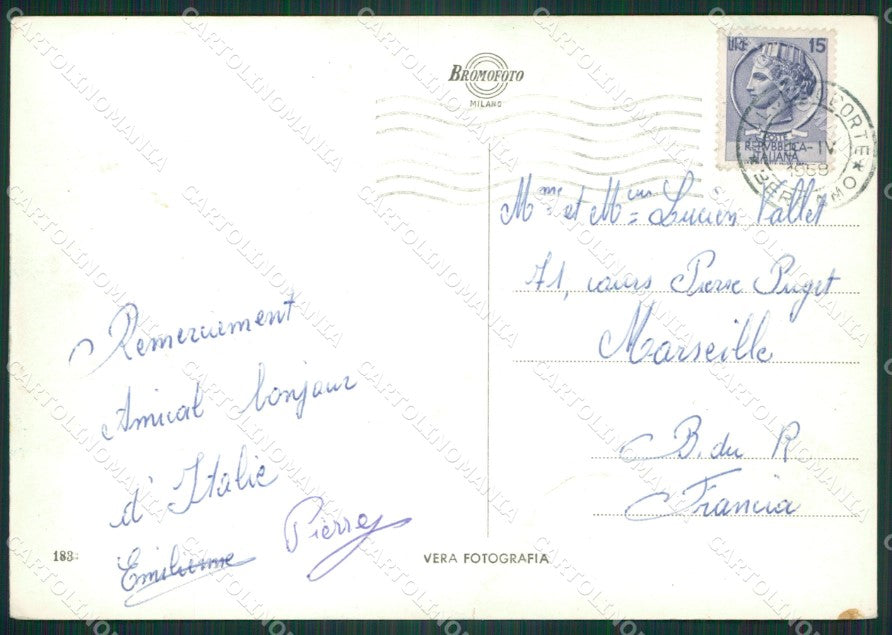 BROMOFOTO
MILANO
LIRE 15
POSTE
REPVBBLICA
ITALIANA
Mme et M Lucien Vallet
71, cours Pierre Puget
Marseille
B. du R
Francia
Remerciement
Amical bonjour
d'Italie
Pierre
183
VERA FOTOGRAFIA
CARTOLINOMANIA